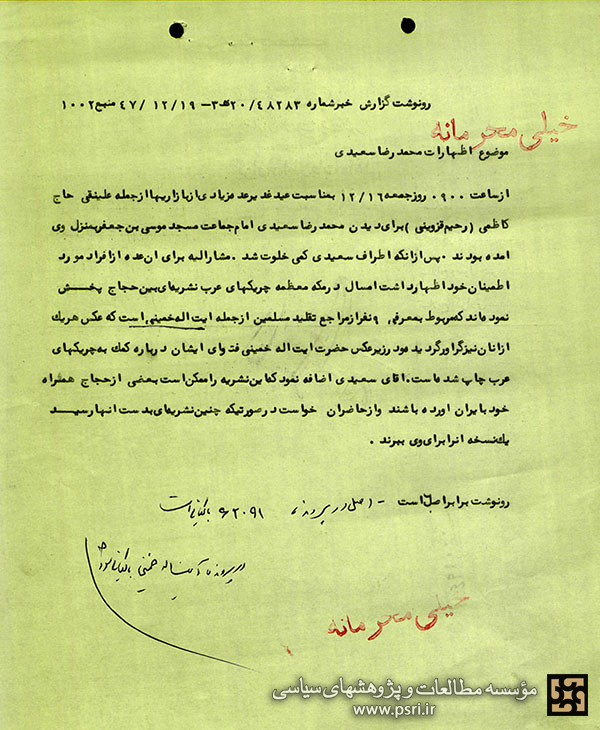 رونوشت گزارش خبر شماره ۴۸۲۸۳/۲۰ﻫ ۳ – ۱۲/۱۹ /۴۷ منبع ۱۰۰۲
خیلی محرمانه
موضوع اظهارات محمد رضا سعیدی
از ساعت ۰۹۰۰ روز جمعه ۱۲/۱۶ بمناسبت عید غدیر عده زیادی از بازاریها از جمله علینقی حاج
کاظمی (رحیم قزوینی) برای دیدن محمد رضا سعیدی امام جماعت مسجد موسی بن جعفر بمنزل وی
امده بودند . پس از انکه اطراف سعیدی کمی خلوت شد . مشارالیه برای ان عده از افراد مورد
اطمینان خود اظهار داشت امسال در مکه معظمه چریکهای عرب نشریه ای بین حجاج پخش
نموده اند که مربوط بمعرفی ۹ نفر از مراجع تقلید مسلمین از جمله ایت اله خمینی است که عکس هر یک
از انان نیز گراور گردیده و در زیر عکس حضرت ایت اله خمینی فتوای ایشان درباره کمک به چریکهای
عرب چاپ شده است . اقای سعیدی اضافه نمود که این نشریه را ممکن است بعضی از حجاج همراه
خود بایران اورده باشند و از حاضران خواست در صورتیکه چنین نشریه ای بدست انها رسید
یک نسخه انرا برای وی ببرند .
رونوشت برابر اصل است - اصل در پرونده ۶۲۰۹۱ بایگانی است
در پرونده آیت اله خمینی بایگانی شود
خیلی محرمانه
مؤسسه مطالعات و پژوهشهای سیاسی
www.psri.ir